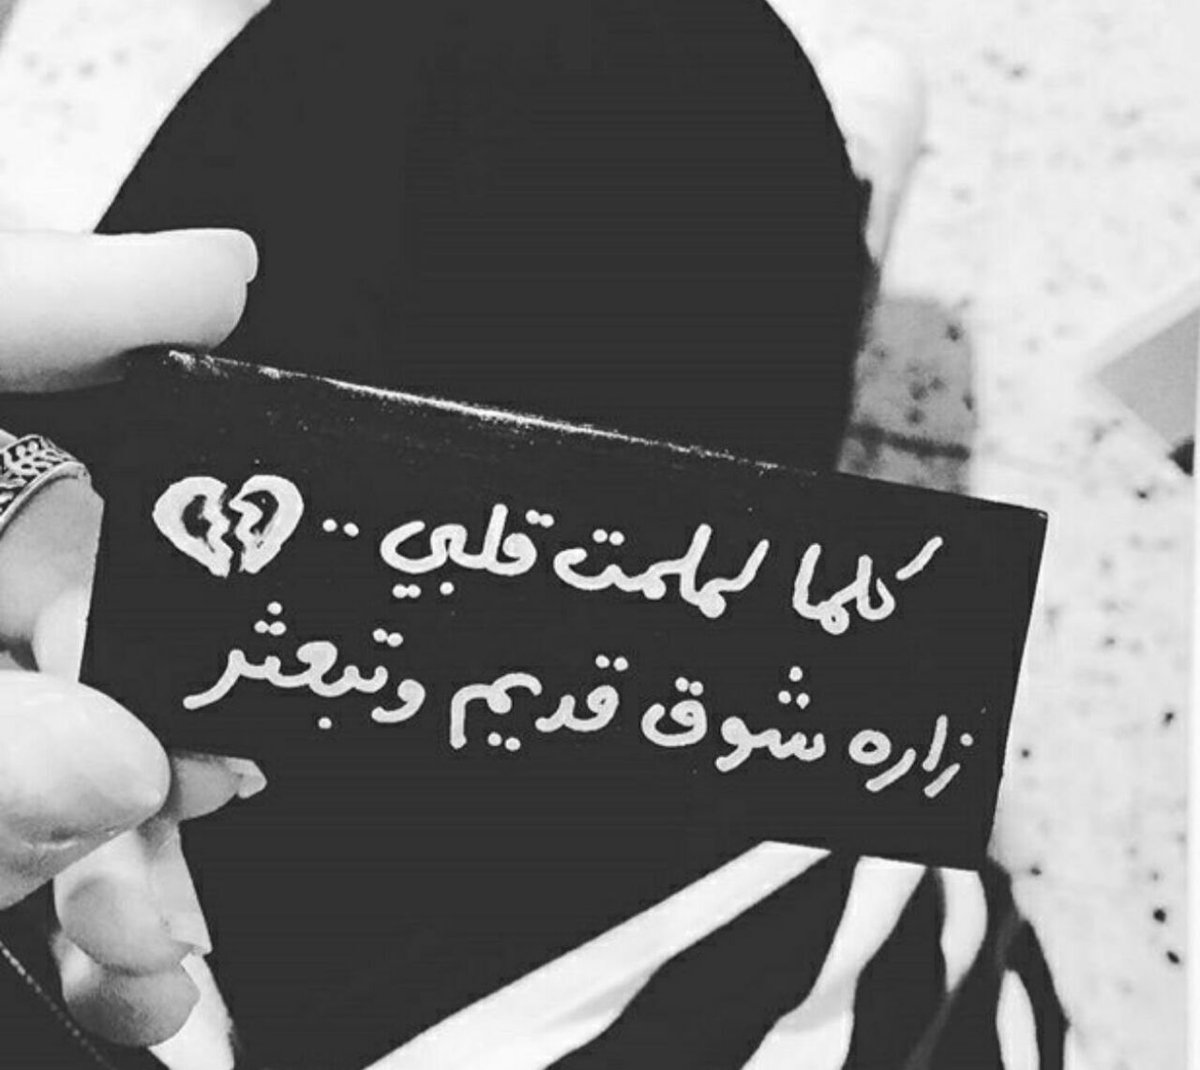 كلما لملمت قلبي ..
زاره شوق قديم وتبعثر